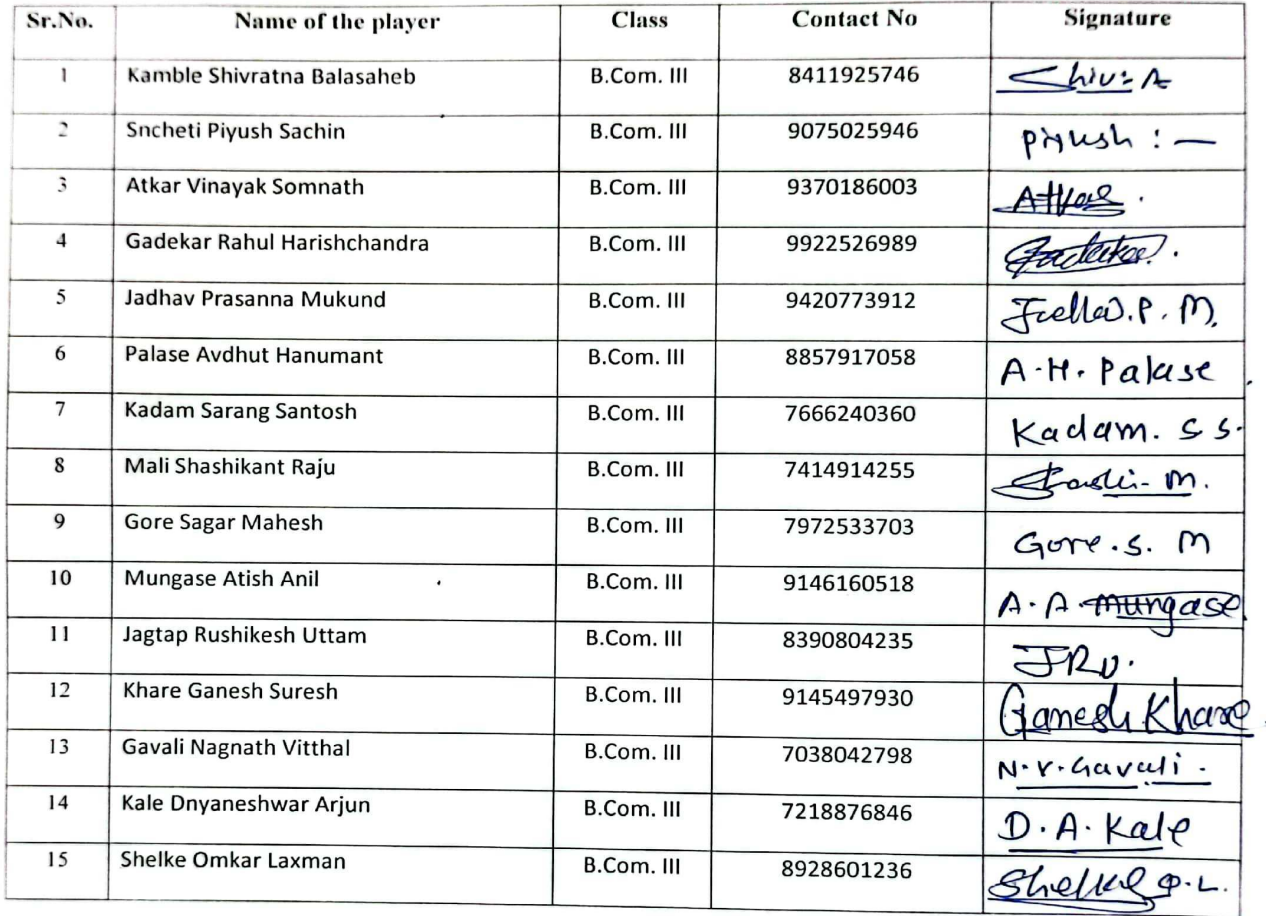 Sr.No. Name of the player Class Contact No Signature
1 Kamble Shivratna Balasaheb B.Com. III 8411925746
2 Sncheti Piyush Sachin B.Com. III 9075025946 Piyush :—
3 Atkar Vinayak Somnath B.Com. III 9370186003 Atkar.
4 Gadekar Rahul Harishchandra B.Com. III 9922526989
5 Jadhav Prasanna Mukund B.Com. III 9420773912 P. M.
6 Palase Avdhut Hanumant B.Com. III 8857917058 A.H. Palase
7 Kadam Sarang Santosh B.Com. III 7666240360 Kadam. S S.
8 Mali Shashikant Raju B.Com. III 7414914255 Shashi- M.
9 Gore Sagar Mahesh B.Com. III 7972533703 Gore.S. M
10 Mungase Atish Anil B.Com. III 9146160518 A. A. Mungase
11 Jagtap Rushikesh Uttam B.Com. III 8390804235 JRU.
12 Khare Ganesh Suresh B.Com. III 9145497930 Ganesh Khare
13 Gavali Nagnath Vitthal B.Com. III 7038042798 N.V.Gavali.
14 Kale Dnyaneshwar Arjun B.Com. III 7218876846 D.A. Kale
15 Shelke Omkar Laxman B.Com. III 8928601236 Shelke O.L.